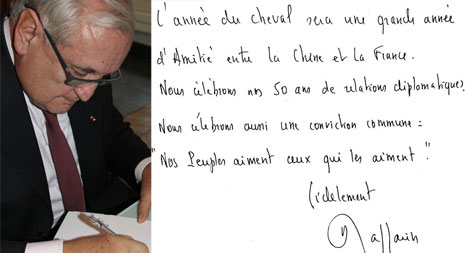 L'année du cheval sera une grande année
d'Amitié entre la Chine et la France.
Nous célébrons nos 50 ans de relations diplomatiques.
Nous célébrons aussi une conviction commune :
"Nos Peuples aiment ceux qui les aiment."
fidèlement
Raffarin